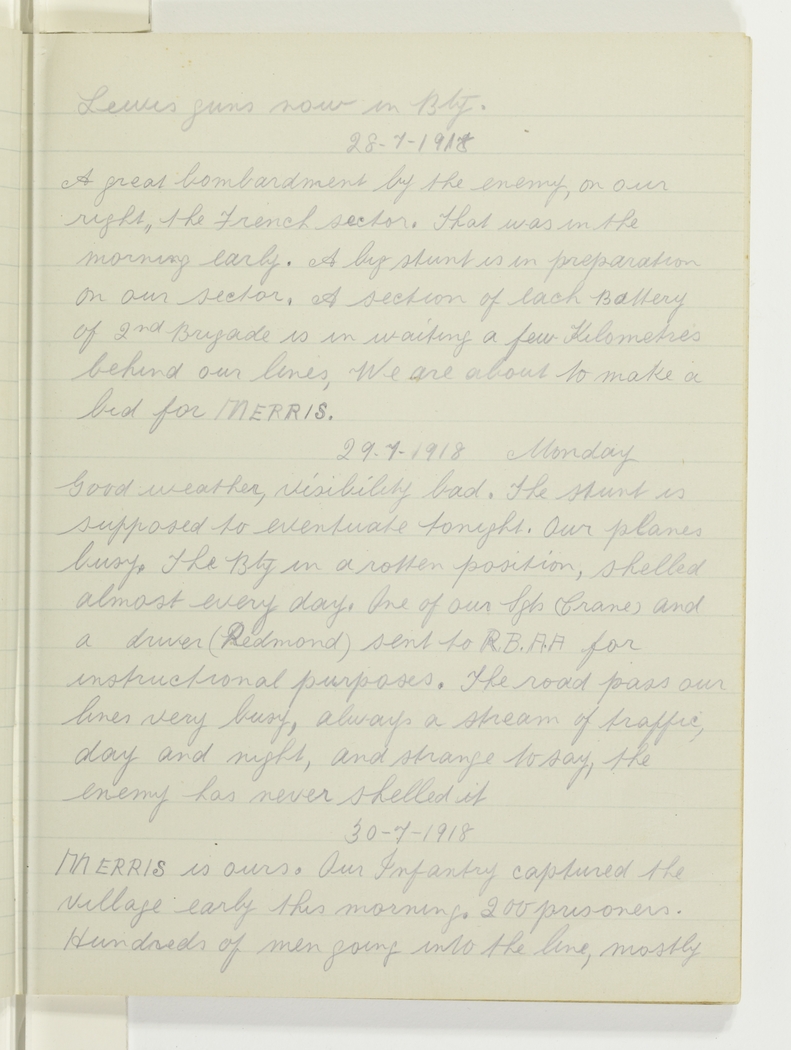 Lewis guns now in Bty.
28-7-1918
A great bombardment by the enemy, on our
right,, the French sector. That was in the
morning early. A big stunt is in preparation
on our sector. A section of each Battery
of 2nd Brigade is in waiting a few Kilometres
behind our lines, We are about to make a
bid for MERRIS.
29-7-1918 Monday
Good weather, visibility bad. The stunt is
supposed to eventuate tonight. Our planes
busy. The Bty in a rotten position, shelled
almost every day. One of our Sgts (Crane) and
a driver (Redmond) sent to R.B.A.A for
instructional purposes. The road pass our
lines very busy, always a stream of traffic,
day and night, and strange to say, the
enemy has never shelled it
30-7-1918
MERRIS is ours. Our Infantry captured the
village early this morning. 200 prisoners.
Hundreds of men going into the line, mostly